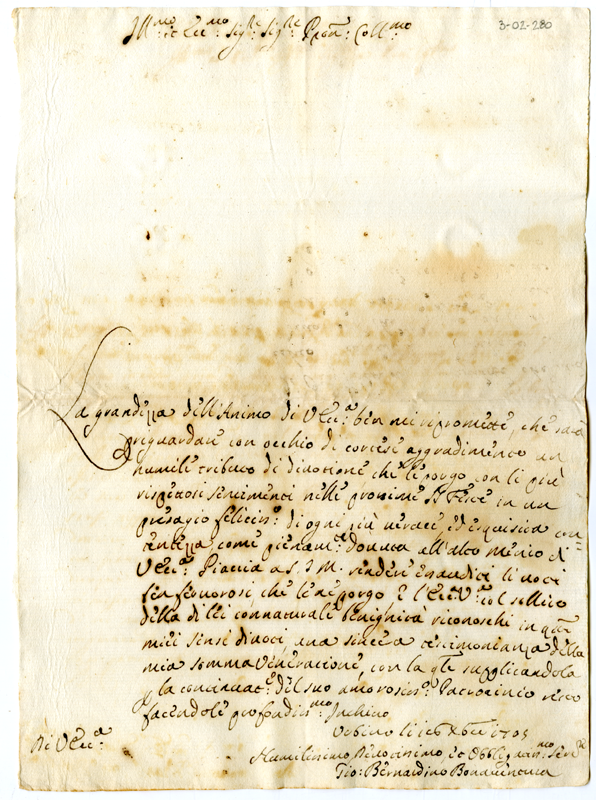 3-02-280
Ill:mo et Ecc:mo Sig:re Sig:re Pron: Coll:mo
La grandezza dell'Animo di V Ecc:a ben mi ripromette, che sarà
riguardare con occhio di cortese aggradimento un
humile tributo di divotione che le porgo con li più
rispettosi sentimenti nelle prossime S:te Feste in un
presagio feliciss:o di ogni più verace ed esquisita con=
tentezza come pienam:te dovuta all'alto merito di
V Ecc:a Piaccia a S. D. M. rendere esauditi li voti
ben fervorosi che le ne porgo e l'Ecc: V:a col solito
della di lei connaturale benignità riconoschi in q:ti
miei sensi divoti, una sincera testimonianza della
mia somma Veneratione, con la q:le supplicandola
la continuat:e del suo amorosiss:o Patrocinio resto
facendole profondiss:mo Inchino
Di V Ecc:a
Urbino li Xbre 1705
Humilissimo Devotissimo, et Obbligatiss:mo Ser:re
Gio: Bernardino Bonaventura